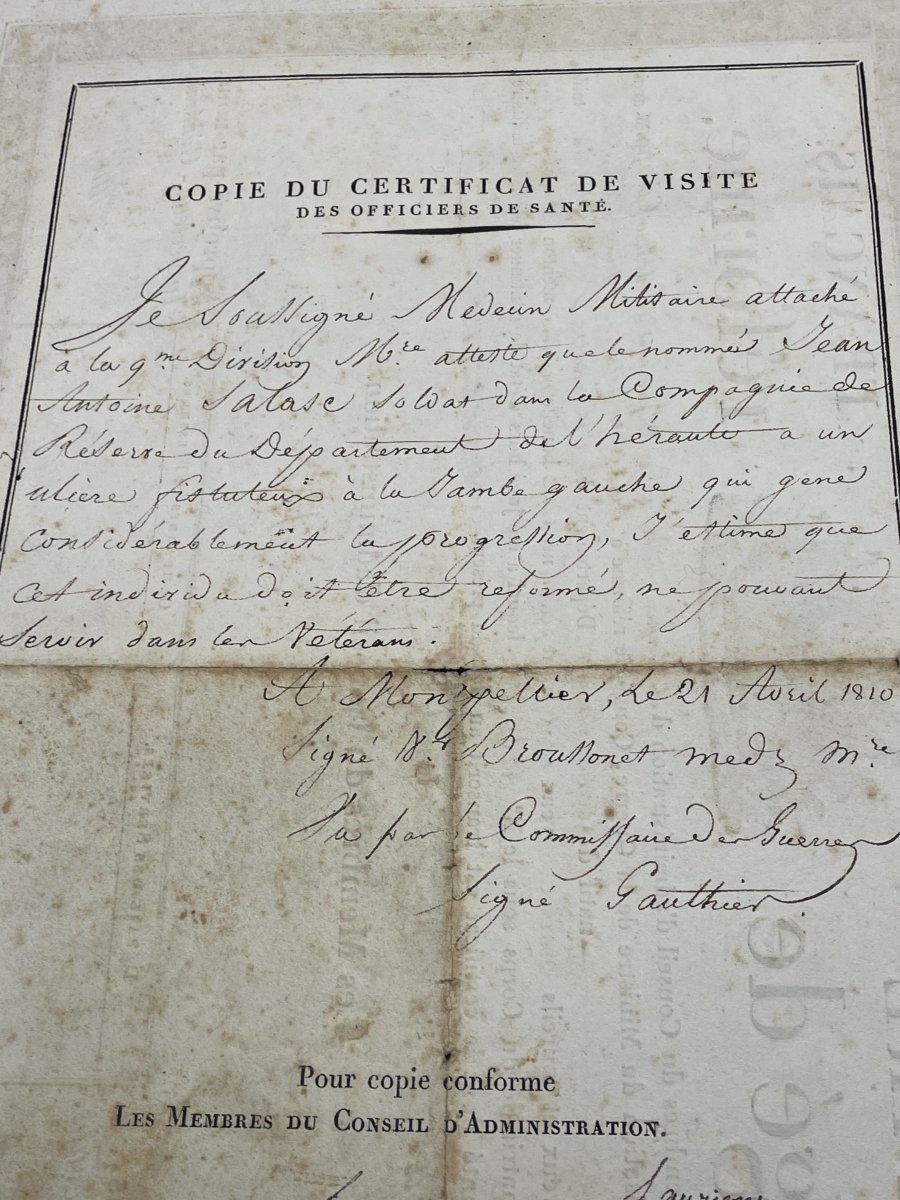 COPIE DU CERTIFICAT DE VISITE
DES OFFICIERS DE SANTÉ.
Je Soussigné Medecin Militaire attaché
à la 9.me Division M.re atteste que le nommé Jean
Antoine Salasc Soldat dans la Compagnie de
Réserve du Département de l'héraute a un
ulière fistuleux à la Jambe gauche qui gene
Considérablement la progression, J'estime que
cet individu doit être reformé, ne pouvant
Servir dans les Vétérans.
A Montpellier, Le 21 Avril 1810
Signé V.or Broussonet med. m.re
Vu par le Commissaire des Guerres
Signé Gauthier
Pour copie conforme
LES MEMBRES DU CONSEIL D'ADMINISTRATION.